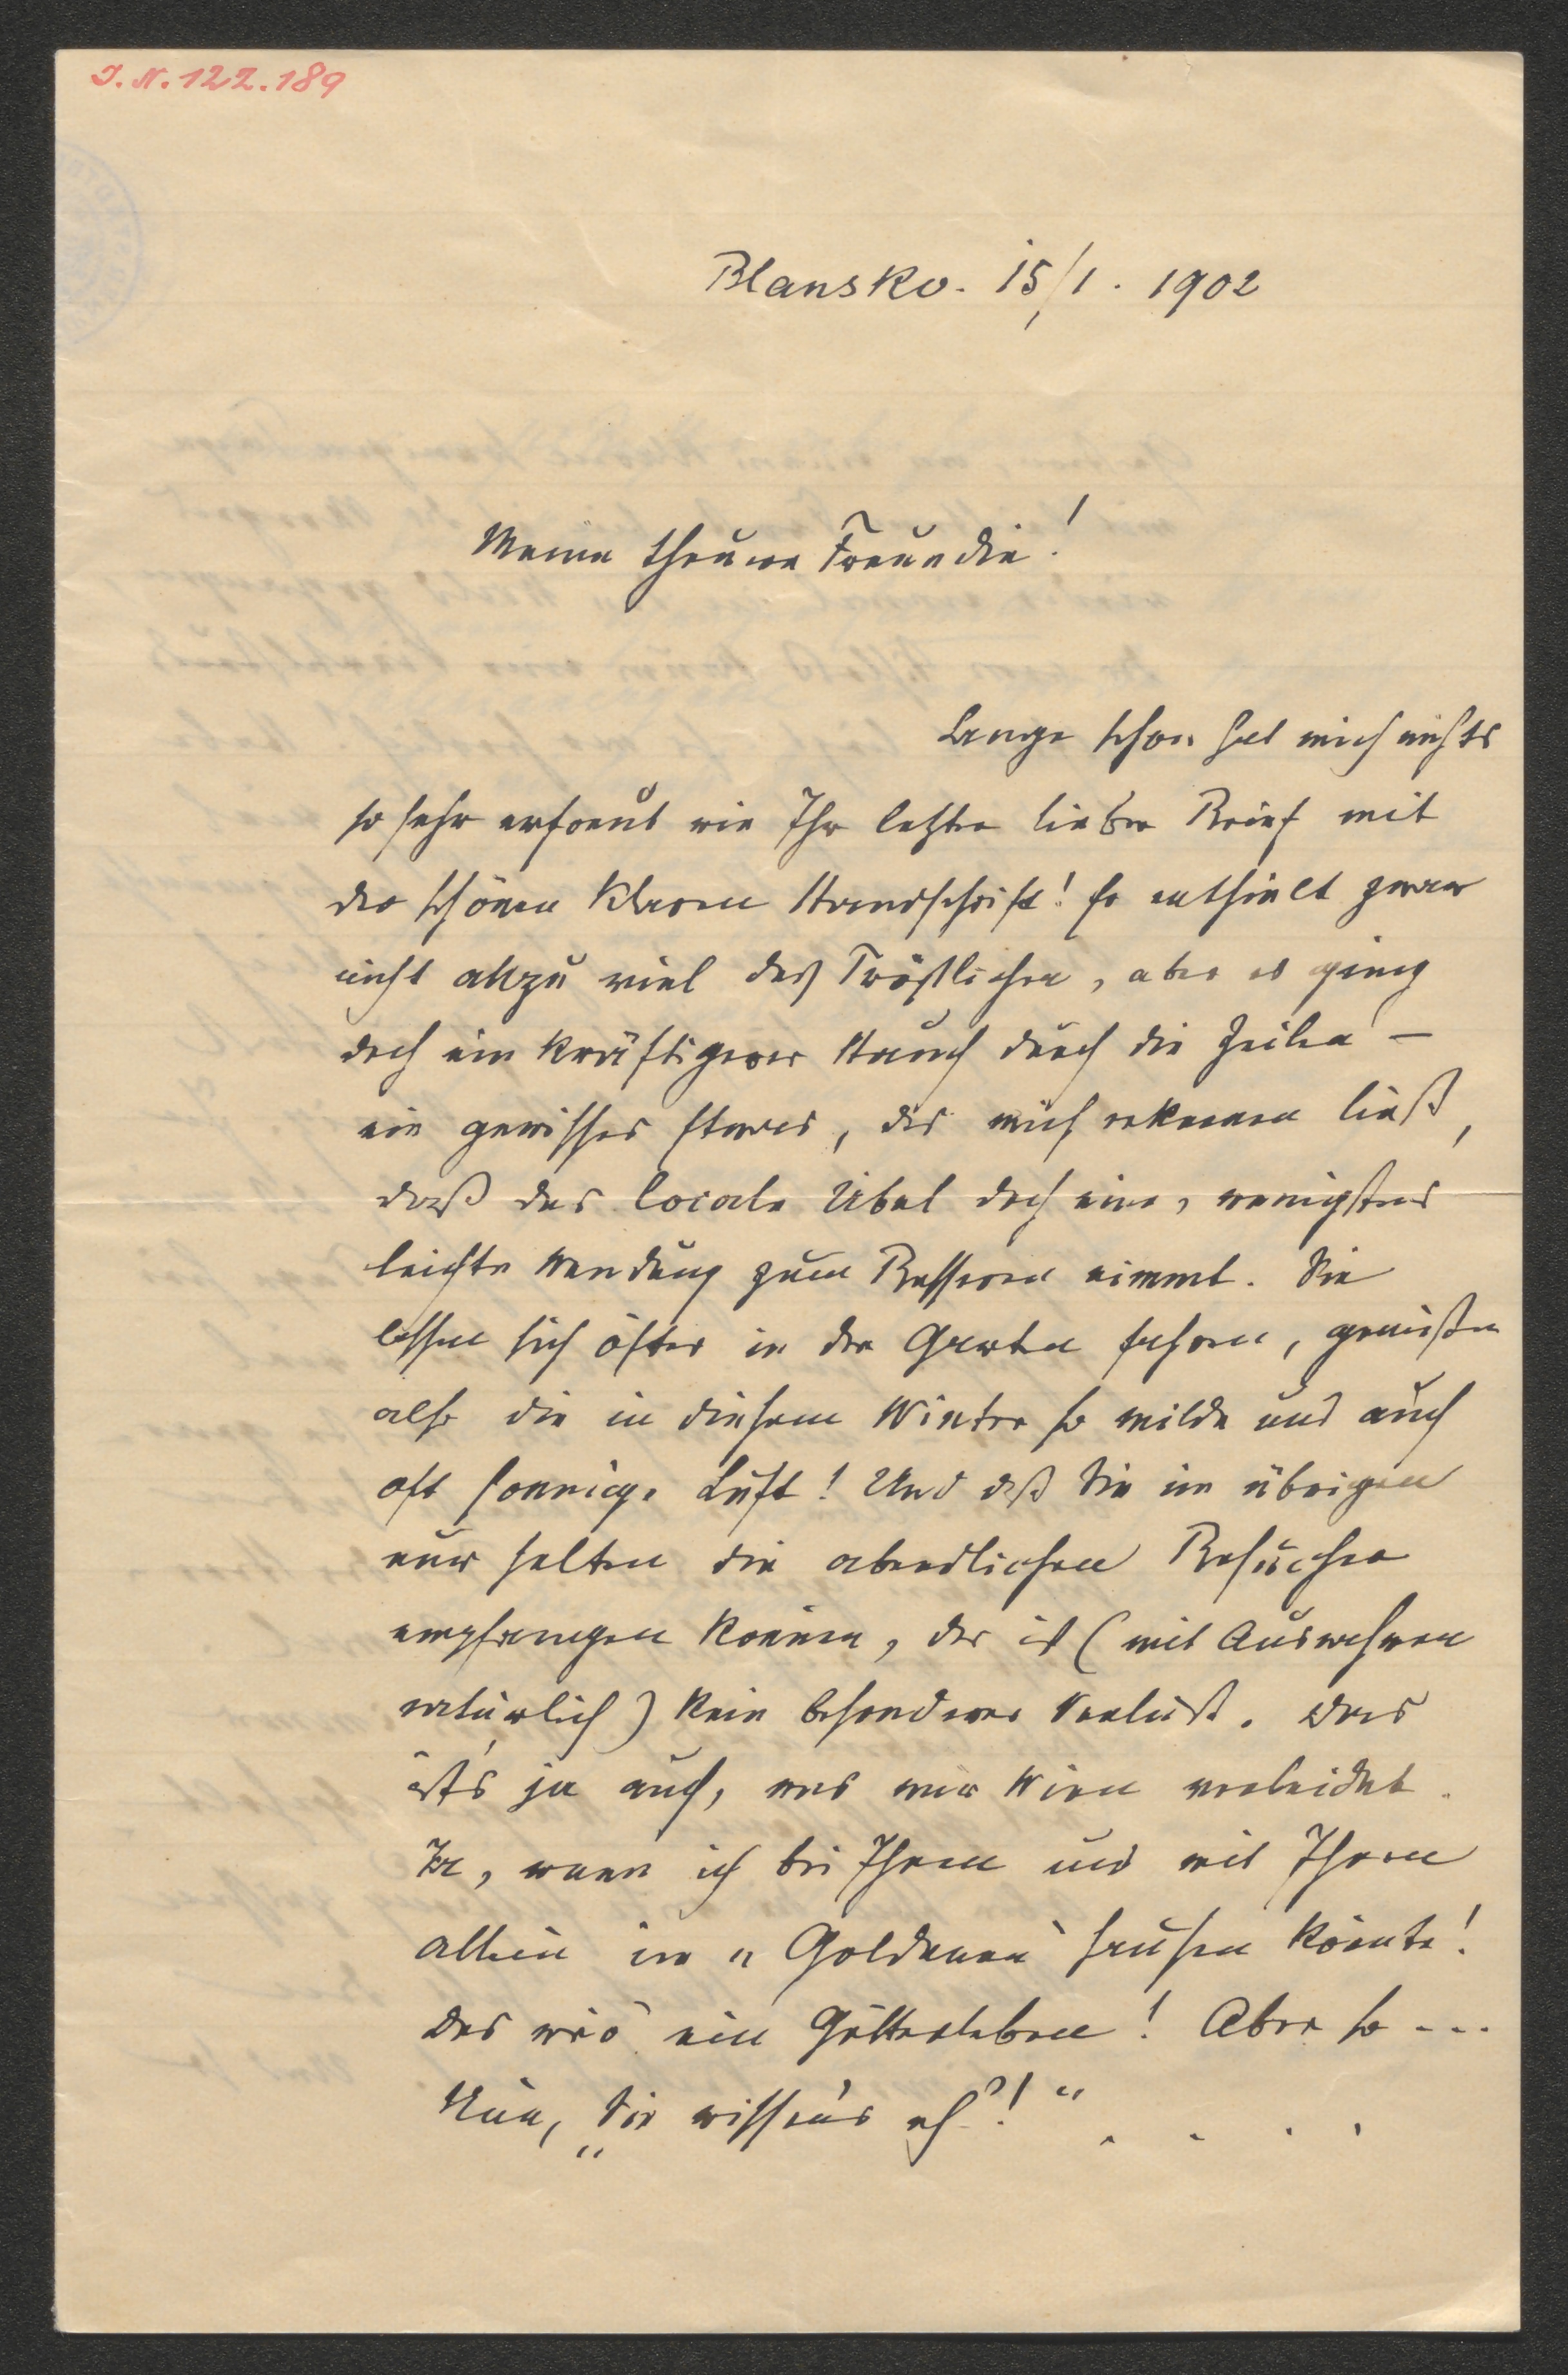 J. N. 122.189
Blansko. 15/1. 1902
Meine theuere Freundin!
Lange schon hat mich nichts
so sehr erfreut wie Ihr letzter lieber Brief mit
der schönen klaren Handschrift! Er enthielt zwar
nicht allzu viel des Tröstlichen, aber es ging
doch ein kräftigerer Hauch durch die Zeilen –
ein gewisses Etwas, das mich erkennen ließ,
daß das locale Übel doch eine, wenigstens
leichte Wendung zum Besseren nimmt. Sie
lassen sich öfter in den Garten fahren, genießen
also die in diesem Winter so milde und auch
oft sonnige Luft! Und daß Sie im übrigen
nur selten die abendlichen Besucher
empfangen können, das ist (mit Ausnahmen
natürlich) kein besonderer Verlust. Das
ist's ja auch, was mir Wien verleidet.
Ja, wenn ich bei Ihnen und mit Ihnen
allein im "Goldenen" hausen könnte!
Das wär' ein Götterleben! Aber so - - -
Nun, „Sie wissen's eh'!“ . . . .